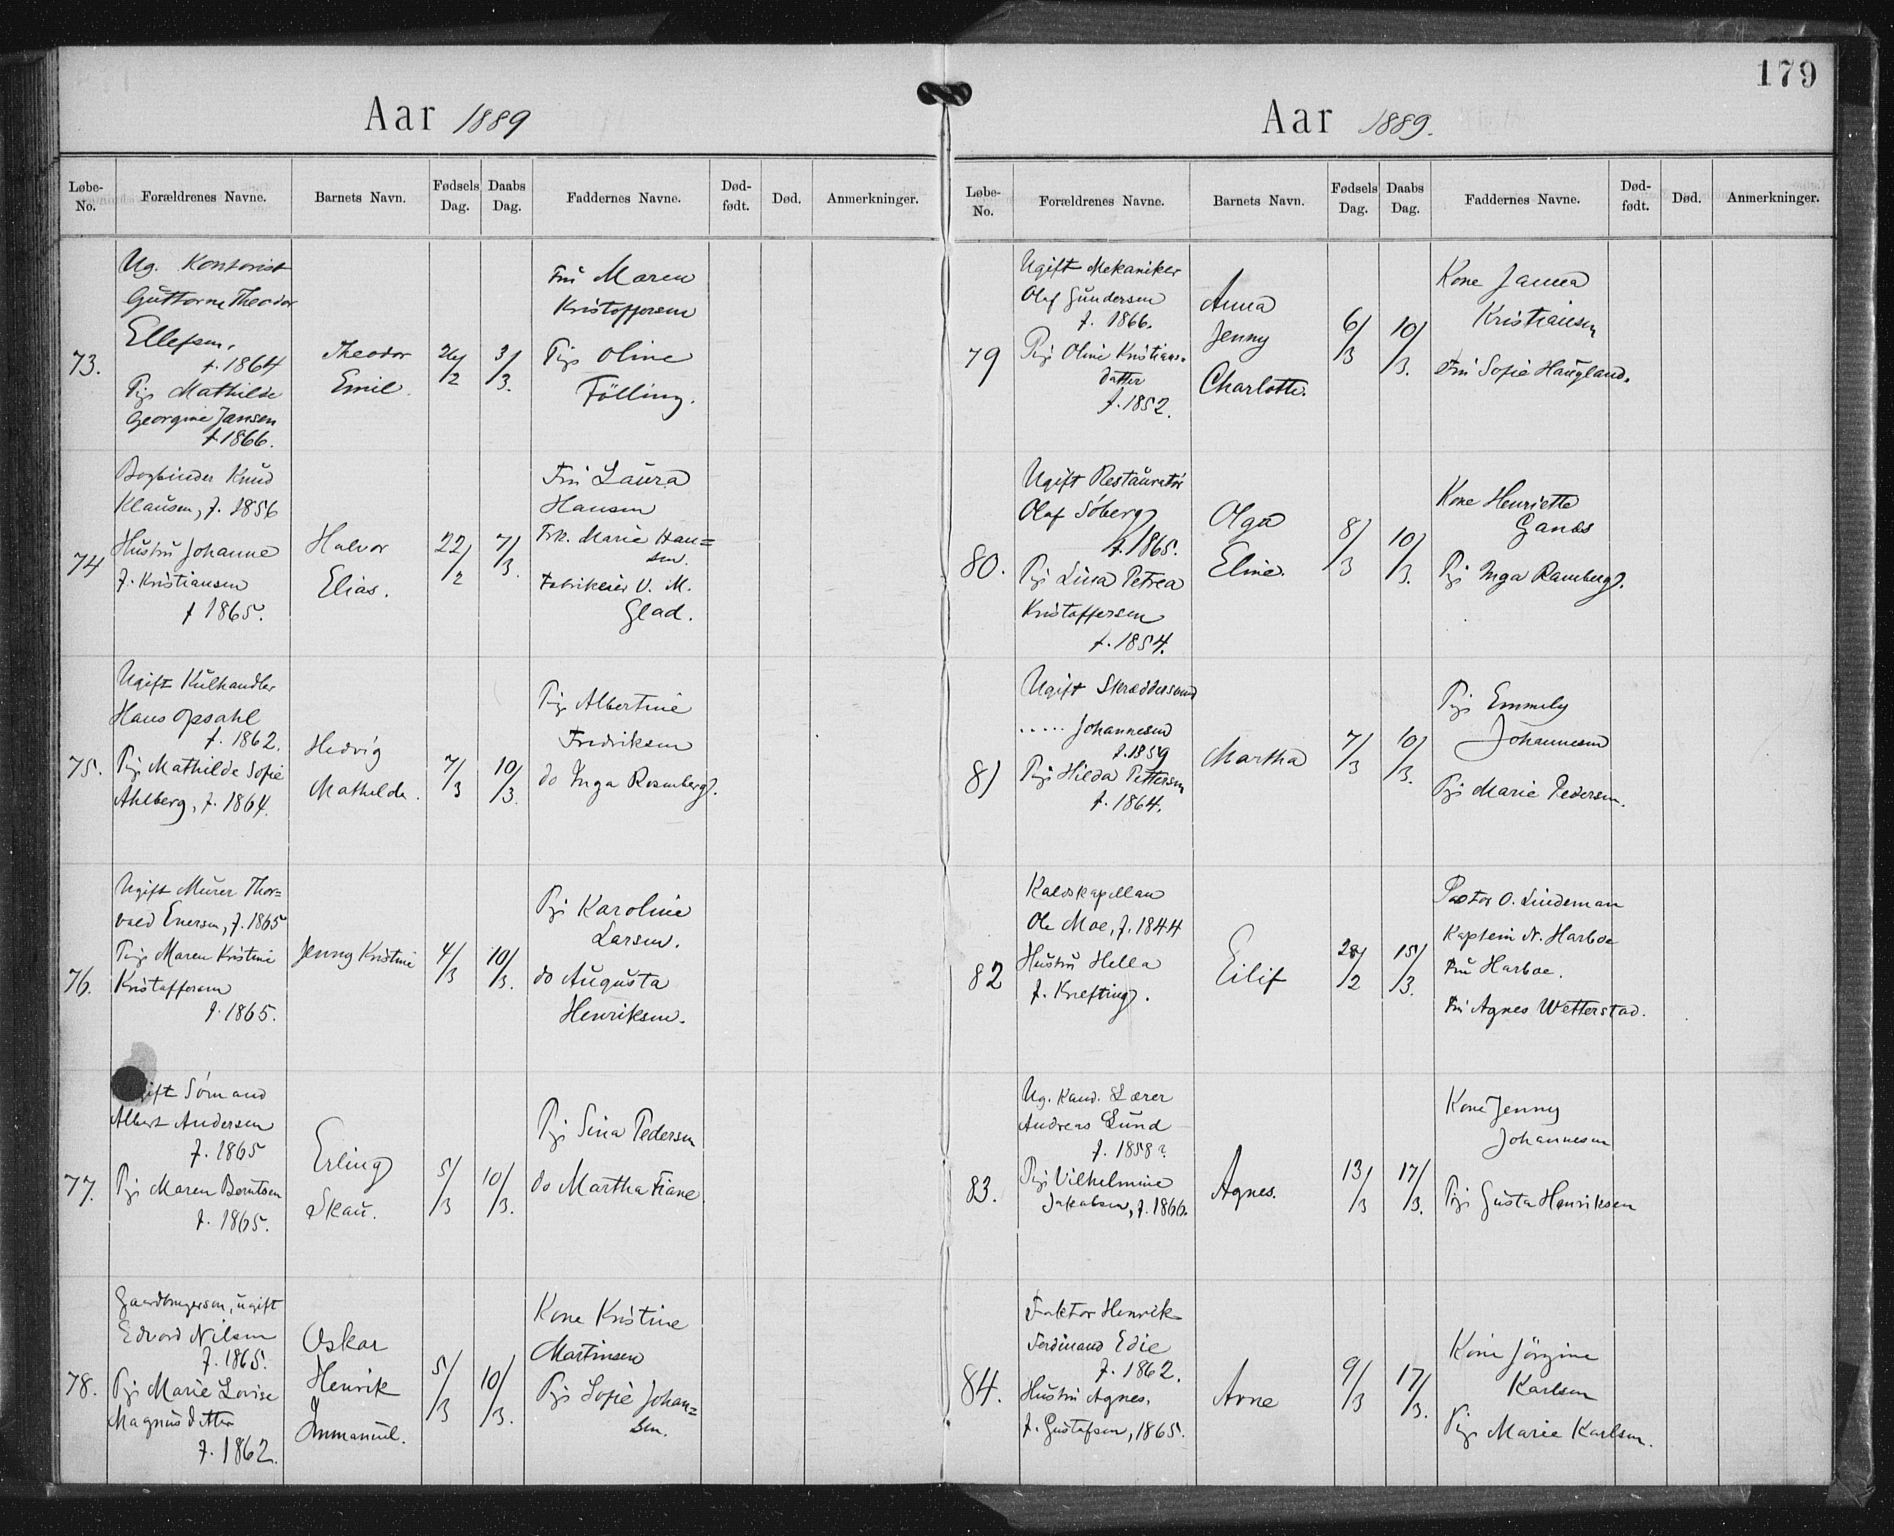 179
Aar 1889
Løbe-No.
Forældrenes Navne.
Barnets Navn.
Fødsels Dag.
Daabs Dag.
Faddernes Navne.
Død-født.
Død.
Anmerkninger.
73.
Ug. Kontorist
Guttorm Theodor
Ellefsen,
f. 1864
Pige Mathilde
Georgine Jansen
f 1866.
Theodor
Emil.
26/2
3/3.
Fru Maren
Kristoffersen
Pige Oline
Fölling.
74
Bogbinder Knud
Klausen, f. 1856
Hustru Johanne
f. Kristiansen
f 1865.
Halvor
Elias.
22/2
7/3.
Fru Laura
Hansen
Frk. Marie Han=
sen.
Fabrikeier V. M.
Glad.
75.
Ugift Kulhandler
Hans Opsahl
f. 1862.
Pige Mathilde Sofie
Ahlberg, f. 1864.
Hedvig
Mathilde.
7/3
10/3.
Pige Albertine
Fredriksen
do Inga Rosenberg.
76.
Ugift Murer Thor=
vald Enersen, f. 1865
Pige Maren Kristine
Kristoffersen
f. 1865.
Jenny Kristine
4/3
10/3.
Pige Karoline
Larsen.
do Augusta
Henriksen.
77.
Ugift Sömand
Albert Andersen
f. 1865
Pige Maren Berntsen
f. 1865.
Erling
Skau.
5/3
10/3.
Pige Sina Pedersen
do Martha Fiane
78.
Gaardbrugersøn, ugift
Edvard Nilsen
f. 1865.
Pige Marie Lovise
Magnusdatter
f. 1862.
Oskar
Henrik
Immanuel.
5/3
10/3.
Kone Kristine
Martinsen
Pige Sofie Johan=
sen.
Aar 1889.
Løbe-No.
Forældrenes Navne.
Barnets Navn.
Fødsels Dag.
Daabs Dag.
Faddernes Navne.
Død-født.
Død.
Anmerkninger.
79
Ugift Mekaniker
Olaf Gundersen
f. 1866.
Pige Oline Kristians-
datter
f. 1852.
Anna
Jenny
Charlotte.
6/3
10/3.
Kone Janna
Kristiansen
Fru Sofie Haugland.
80.
Ugift Restauratör
Olaf Söberg
f. 1865.
Pige Lina Petrea
Kristoffersen
f. 1854.
Olga
Eline.
8/3
10/3.
Kone Henriette
Ganes
Pige Inga Ramberg.
81
Ugift Skræddersvend
..... Johannesen
f. 1859
Pige Hilda Pettersen
f. 1864.
Martha
7/3
10/3.
Pige Emmely
Johannesen
Pige Marie Pedersen.
82
Kaldskapellan
Ole Moe, f. 1844
Hustru Hella
f. Krefting.
Eilif
28/2
15/3.
Pastor O. Lindeman
Kaptein N. Harboe
Fru Harboe.
Fru Agnes Wetterstad.
83.
Ug. Kand. Lærer
Andreas Lund
f. 1858?
Pige Vilhelmine
Jakobsen, f. 1866.
Agnes.
13/3
17/3.
Kone Jenny
Johannesen
Pige Gusta Henriksen
84.
Faktor Henrik
Ferdinand Edie
f. 1862.
Hustru Agnes,
f. Gustafsen, 1865.
Arne
9/3
17/3.
Kone Jörgine
Karlsen
Pige Marie Karlsen.